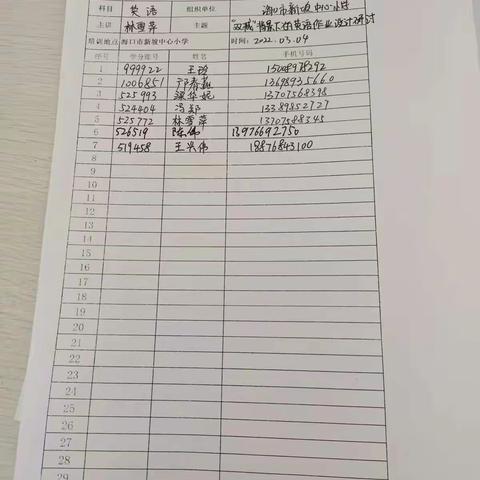 科目 英语 组织单位 海口市新坡中心小学
主讲 林雪萍 主题 "双减"背景下的英语作业设计研讨
培训地点 海口市新坡中心小学 时间：2022.03.04
序号 学分账号 姓名 手机号码
1 999922 王
2 1006851 13698935660
3 525993 梁华妃 13707568398
4 524404 冯 13389852727
5 525772 林雪萍 13707588345
6 526519 陈伟 13976692750
7 519458 王兴伟 18876843100
8
9
10
11
12
13
14
15
16
17
18
19
20
21
22
23
24
25
26
27
28
29